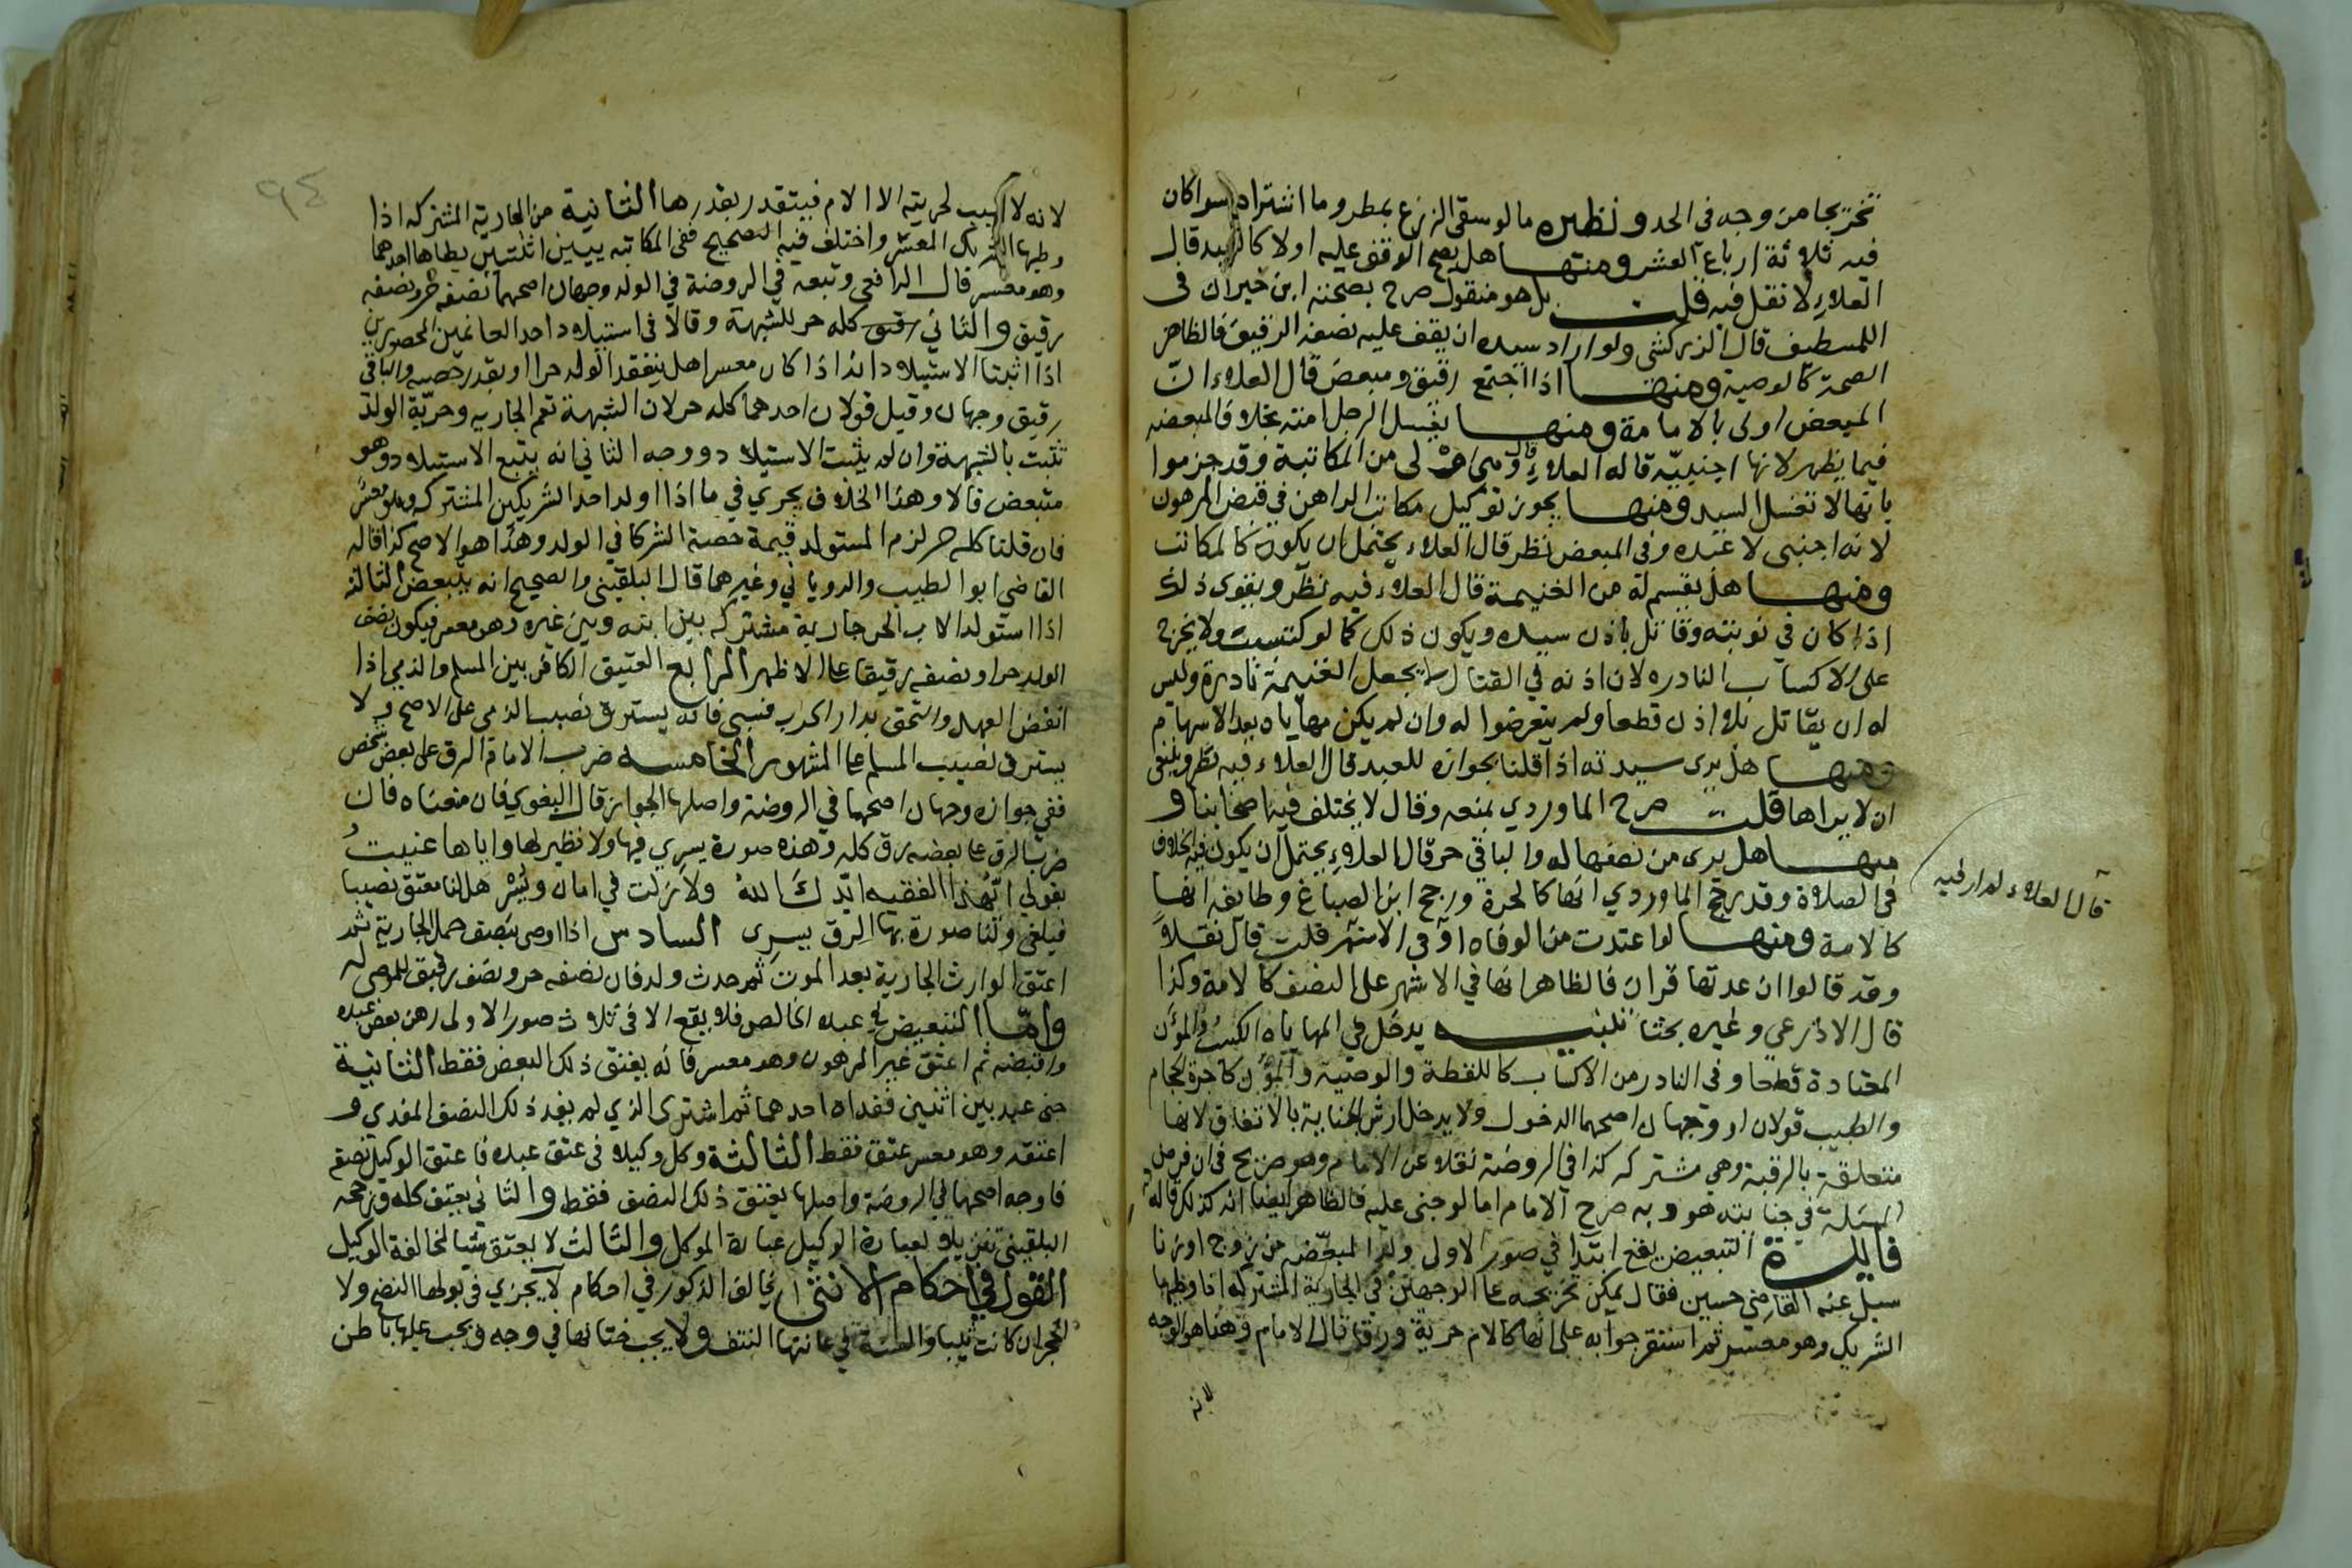 تخريجا من وجه فى الحد ونظيره ما لو سقى الزرع بمطر وما اشتراه سوا كان
فيه ثلاثة ارباع العشر ومنها هل يصح الوقف عليه اولا كالعبد قال
العلاء لا نقل فيه قلت بل هو منقول صرح بصحته ابن خيران فى
اللطيف قال الزركشى ولو اراد سيده ان يقف عليه نصفه الرقيق فالظاهر
الصحة كالوصية ومنها اذا اجتمع رقيق ومبعض قال العلاء ان
المبعض اولى بالامامة ومنها يغسل الرجل امته بخلاف المبعضه
فيما يظهر لانها اجنبيّة قاله العلاء قال وهى اولى من المكاتبة وقد جزموا
بانها لا تغسل السيد ومنها يجوز توكيل مكاتب الراهن في قبض المرهون
لانه اجنبى لا عبده وفى المبعض نظر قال العلاء يحتمل ان يكون كالمكاتب
ومنها هل يقسم له من الغنيمة قال العلاء فيه نظر ويقوى ذلك
اذا كان في نوبته وقاتل باذن سيده ويكون ذلك كما لو كتسبت ولا يخرج
على الاكساب النادره لان اذنه في القتال لا يجعل الغنيمة نادرة وليس
له ان يقاتل بلا اذن قطعا ولم يتعرضوا له وان لم يكن مهاياه بعد الاسهام
ومنها هل يرى سيدته اذا قلنا بجوازه للعبد قال العلاء فيه نظر وينبغى
ان لا يراها قلت صرح الماوردي بمنعه وقال لا يختلف فيه اصحابنا و
منها هل يرى من نصفها له والباقي حر قال العلاء يحتمل ان يكون فيه الخلاف
فى الصلاة وقد رجح الماوردي انها كالحرة ورجح ابن الصباغ وطايفه انها
كالامة ومنها لو اعتدت من الوفاه او فى الاشهر قلت قال نقلاً
قال العلاء لم ار فيه
وقد قالوا ان عدتها قران فالظاهر انها في الاشهر على النصف كالامة وكذا
قال الاذرعي وغيره بحثا تنبيه يدخل في المهاياه الكسب والمؤن
المعتادة قطعا وفى النادر من الاكساب كاللقطة والوصية والمؤن كاجرة الحجام
والطبيب قولان او وجهان اصحهما الدخول ولا يدخل ارش الجناية بالاتفاق لانها
متعلقة بالرقبة وهي مشتركه كذا في الروضة نقلا عن الامام وهو صريح في ان فرض
المسئلة في جنايته هو وبه صرح الامام اما لو جنى عليه فالظاهر ايضا انه كذلك قاله
فائدة التبعيض يقع ابتدا في صور الاولى ولد المبعضه من زوج او زنا
سيل عنه القاضي حسين فقال يمكن تخريجه على الوجهين في الجارية المشتركه اذا وطيها
الشريك وهو معسر ثم استقر جوابه على انه كالام حرية ورقا قال الامام وهذا هو الوجه
لانه
٩٤
لانه لا سبب لحريته الا الام فيتقدر بقدرها الثانية من الجارية المشتركه اذا
وطيها الشريك المعسر واختلف فيه التصحيح ففى المكاتبه بين اثنين يطاها احدهما
وهو معسر قال الرافعي وتبعه في الروضة في الولد وجهان اصحهما نصفه حر ونصفه
رقيق والثاني كله حر للشبهة وقالا فى استيلاد احد الغانمين المحصورين
اذا اثبتنا الاستيلاد اذا كان معسرا هل ينعقد الولد حرا او بقدر حصته والباقى
رقيق وجهان وقيل قولان احدهما كله حر لان الشبهة تعم الجارية وحريّة الولد
تثبت بالشبهة وان لم يثبت الاستيلاد ووجه الثاني انه يتبع الاستيلاد وهو
متبعض قالا وهذا الخلاف يجري في ما اذا اولد احد الشريكين المشتركه وهو معسر
فان قلنا كله حر لزم المستولد قيمة حصة الشركا في الولد وهذا هو الاصح كذا قاله
القاضي ابو الطيب والروياني وغيرهما قال البلقينى والصحيح انه يتبعض الثالثه
اذا استولد الاب الحر جارية مشتركه بين ابنه وبين غيره وهو معسر فيكون نصف
الولد حرا ونصفه رقيقا على الاظهر الرابع العتيق الكافر بين المسلم والذمي اذا
انقض العهد والتحق بدار الحرب فسبى فانه يسترق نصيب الذمى على الاصح ولا
يسترق نصيب المسلم على المشهور الخامسه ضرب الامام الرق على بعض شخص
ففي جوازه وجهان اصحهما في الروضة واصلها الجواز قال البغوي فان منعناه فان
ضرب الرق على بعضه رق كله وهذه صورة يسري فيها ولا نظير لها واياها عنيتُ
بقولي ايّهذا الفقيه ايّدك اللهُ ولا زلت في امان ويُسْر هل لنا معتق نصيبا
فيلغى ولنا صورة بها الرق يسرى السادس اذا اوصى بنصف حمل الجارية ثم
اعتق الوارث الجارية بعد الموت ثم حدث ولد فان نصفه حر ونصف رقيق للموصى له
وامّا التبعيض في عبده الخالص فلا يقع الا فى ثلاث صور الاولى رهن بعض عبده
واقبضه ثم اعتق غير المرهون وهو معسر فانه يعتق ذلك البعض فقط الثانية
جنى عبد بين اثنين ففداه احدهما ثم اشترى الذي لم يفد ذلك النصف المفدي و
اعتقه وهو معسر عتق فقط الثالثة وكل وكيلا فى عتق عبده فاعتق الوكيل نصفه
فاوجه اصحها في الروضة واصلها يعتق ذلك النصف فقط والثاني يعتق كله ورجحه
البلقيني تنزيلا لعبارة الوكيل عبارة الموكل والثالث لا يعتق شيا لمخالفة الوكيل
القول في احكام الانثى تخالف الذكور في احكام لا يجزي فى بولها النضح ولا
الحجر ان كانت ثيبا والسنة في عانتها النتف ولا يجب ختانها في وجه ويجب عليها باطن